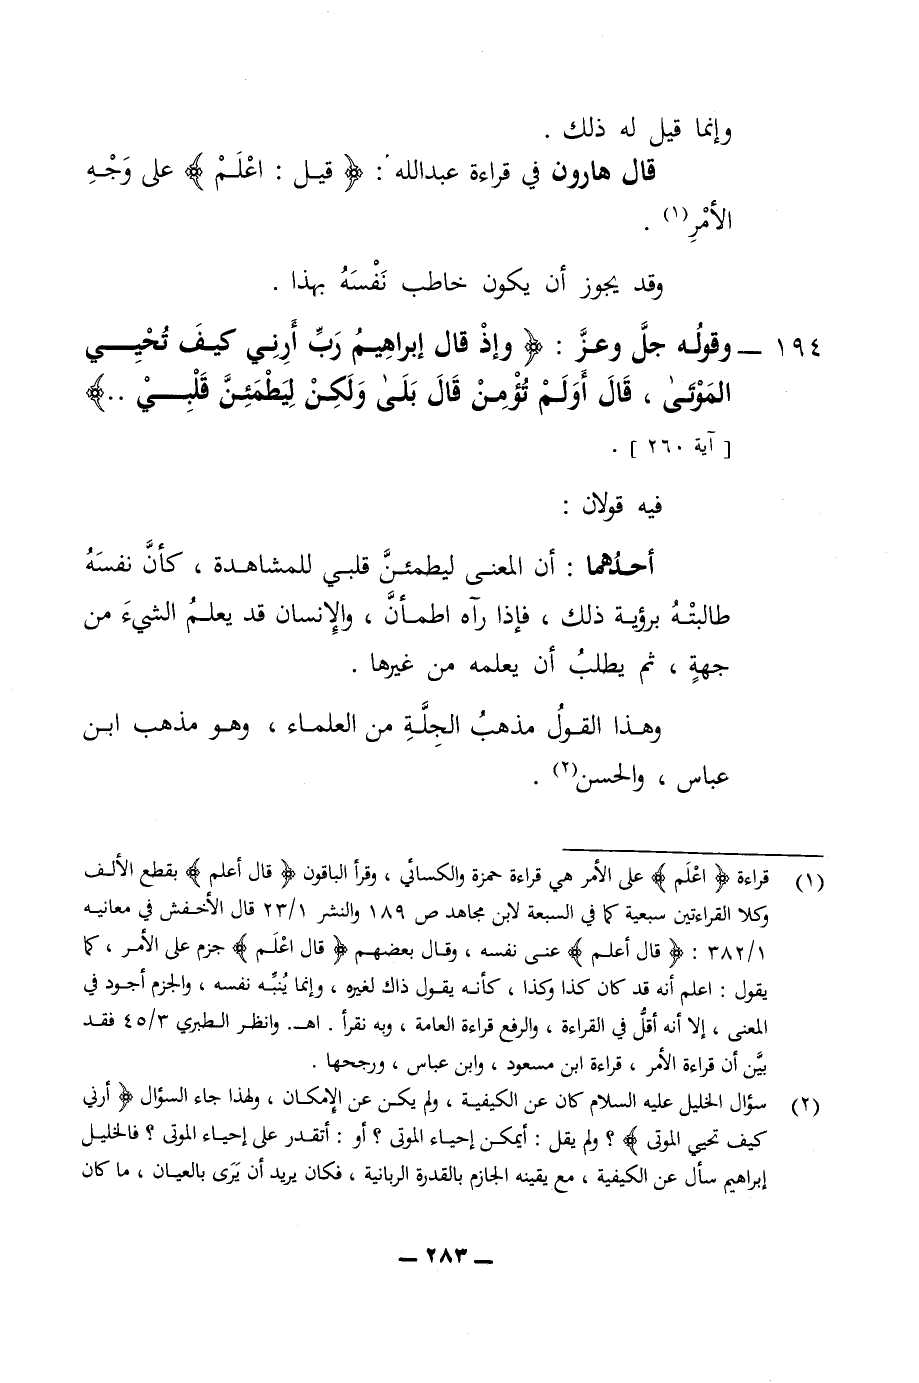 وإنما قيل له ذلك .
قال هارون في قراءة عبدالله : ﴿ قيـل : اعْلَـمْ ﴾ على وَجْـهِ
الأمْرِ(١) .
وقد يجوز أن يكون خاطب نَفْسَهُ بهذا .
١٩٤ ــ وقولُه جلَّ وعزَّ : ﴿ وإذْ قال إبراهيمُ رَبِّ أَرِني كيفَ تُحْيِـــي
المَوْتَىٰ ، قَالَ أَوَلَمْ تُؤْمِنْ قَالَ بَلَىٰ وَلَكِنْ لِيَطْمَئِنَّ قَلْبِـــيْ ..﴾
[ آية ٢٦٠ ] .
فيه قولان :
أحدُهما : أن المعنى ليطمئنَّ قلبي للمشاهدة ، كأنَّ نفسَهُ
طالبتْـهُ برؤيـة ذلك ، فإذا رآه اطمـأنَّ ، والإنسان قد يعلمُ الشيءَ من
جهةٍ ، ثم يطلبُ أن يعلمه من غيرها .
وهـذا القـولُ مذهبُ الجِلَّـةِ من العلمـاء ، وهـو مذهب ابـن
عباس ، والحسن(٢) .
(١) قراءة ﴿ اعْلَم ﴾ على الأمر هي قراءة حمزة والكسائي ، وقرأ الباقون ﴿ قال أعلم ﴾ بقطع الألـف
وكلا القراءتين سبعية كما في السبعة لابن مجاهد ص ١٨٩ والنشر ٢٣/١ قال الأخـفش في معانيـه
٣٨٢/١ : ﴿ قال أعلـم ﴾ عنـى نفسـه ، وقـال بعضهـم ﴿ قال اعْلَـم ﴾ جزم على الأمـر ، كما
يقول : اعلم أنه قد كان كذا وكذا ، كأنـه يقول ذاك لغيره ، وإنما يُنبِّـه نفسه ، والجزم أجود في
المعنى ، إلا أنه أقلُّ في القراءة ، والرفع قراءة العامة ، وبه نقرأ . اهـ. وانظـر الـطبري ٤٥/٣ فقـد
بيَّن أن قراءة الأمر ، قراءة ابن مسعود ، وابن عباس ، ورجحها .
(٢) سؤال الخليل عليه السلام كان عن الكيفية ، ولم يكـن عن الإمكـان ، ولهذا جاء السؤال ﴿ أرني
كيف تحيي الموتى ﴾ ؟ ولم يقل : أيمكـن إحياء الموتى ؟ أو : أتقـدر على إحياء الموتى ؟ فالخليـل
إبراهيم سأل عن الكيفية ، مع يقينه الجازم بالقدرة الربانية ، فكان يريد أن يَرَى بالعيان ، ما كان
ــ ٢٨٣ ــ